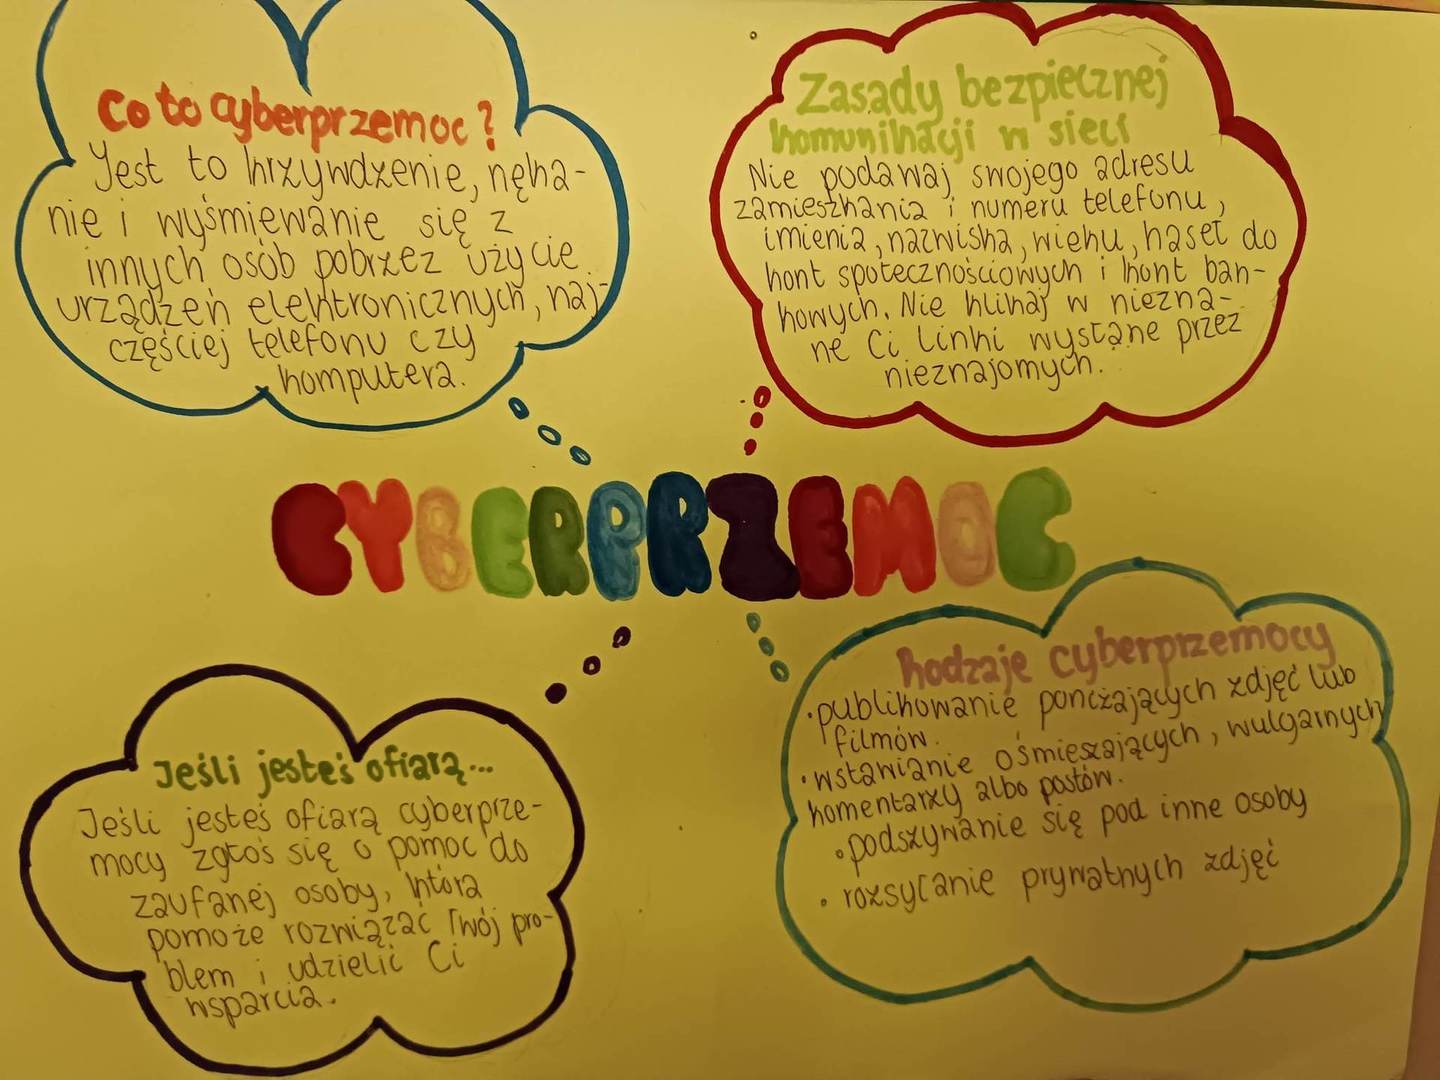 Co to cyberprzemoc?
Jest to krzywdzenie, nęka-
nie i wyśmiewanie się z
innych osób pobrzez użycie
urządzeń elektronicznych, naj-
częściej telefonu czy
komputera.
Zasady bezpiecznej
komunikacji w sieci
Nie podawaj swojego adresu
zamieszkania i numeru telefonu,
imienia, nazwiska, wieku, haseł do
kont społecznościowych i kont ban-
kowych. Nie klikaj w niezna-
ne Ci linki wysłane przez
nieznajomych.
CYBERPRZEMOC
Jeśli jesteś ofiarą...
Jeśli jesteś ofiarą cyberprze-
mocy zgłoś się o pomoc do
zaufanej osoby, która
pomoże rozwiązać Twój pro-
blem i udzielić Ci
wsparcia.
Rodzaje cyberprzemocy
•publikowanie poniżających zdjęć lub
filmów.
•wstawianie ośmieszających, wulgarnych
komentarzy albo postów.
•podszywanie się pod inne osoby
• rozsyłanie prywatnych zdjęć